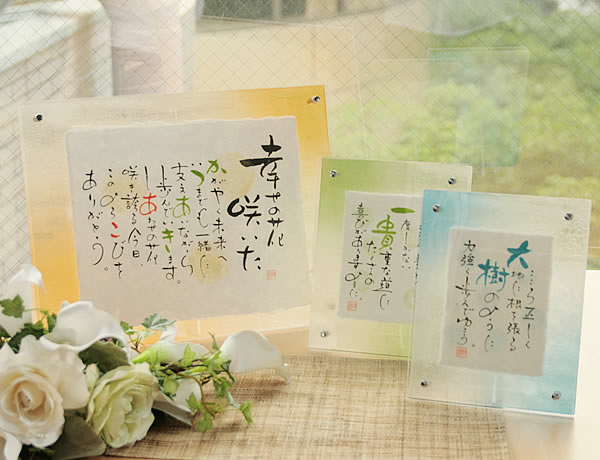 幸せの花
咲いた
かがやく未来へ
いつまでも一緒に
支えあいながら
歩んでいきます。
しあわせの花
咲き誇る今日、
このよろこびを
ありがとう。
一度しかない
貴重な道に
たくさんの
喜びがありますように。
こころ正しく
大地に根を張る
樹のように
力強く歩んでゆこう。